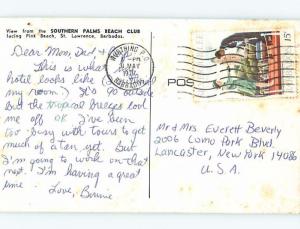 View from the SOUTHERN PALMS BEACH CLUB
facing Pink Beach, St. Lawrence, Barbados.
Dear Mom, Dad, +
This is what
hotel looks like
my room). It's 90 outside
but the tropical breezes cool
me off OK I've been
too busy with tours to get
much of a tan yet. But
I'm going to work on that
next. I'm having a great
time. Love, Bonnie
WORTHING P.O.
PM
MAY
BARBADOS
15c
POS
Mr & Mrs Everett Beverly
2006 Como Park Blvd.
Lancaster, New York 14086
U.S.A.